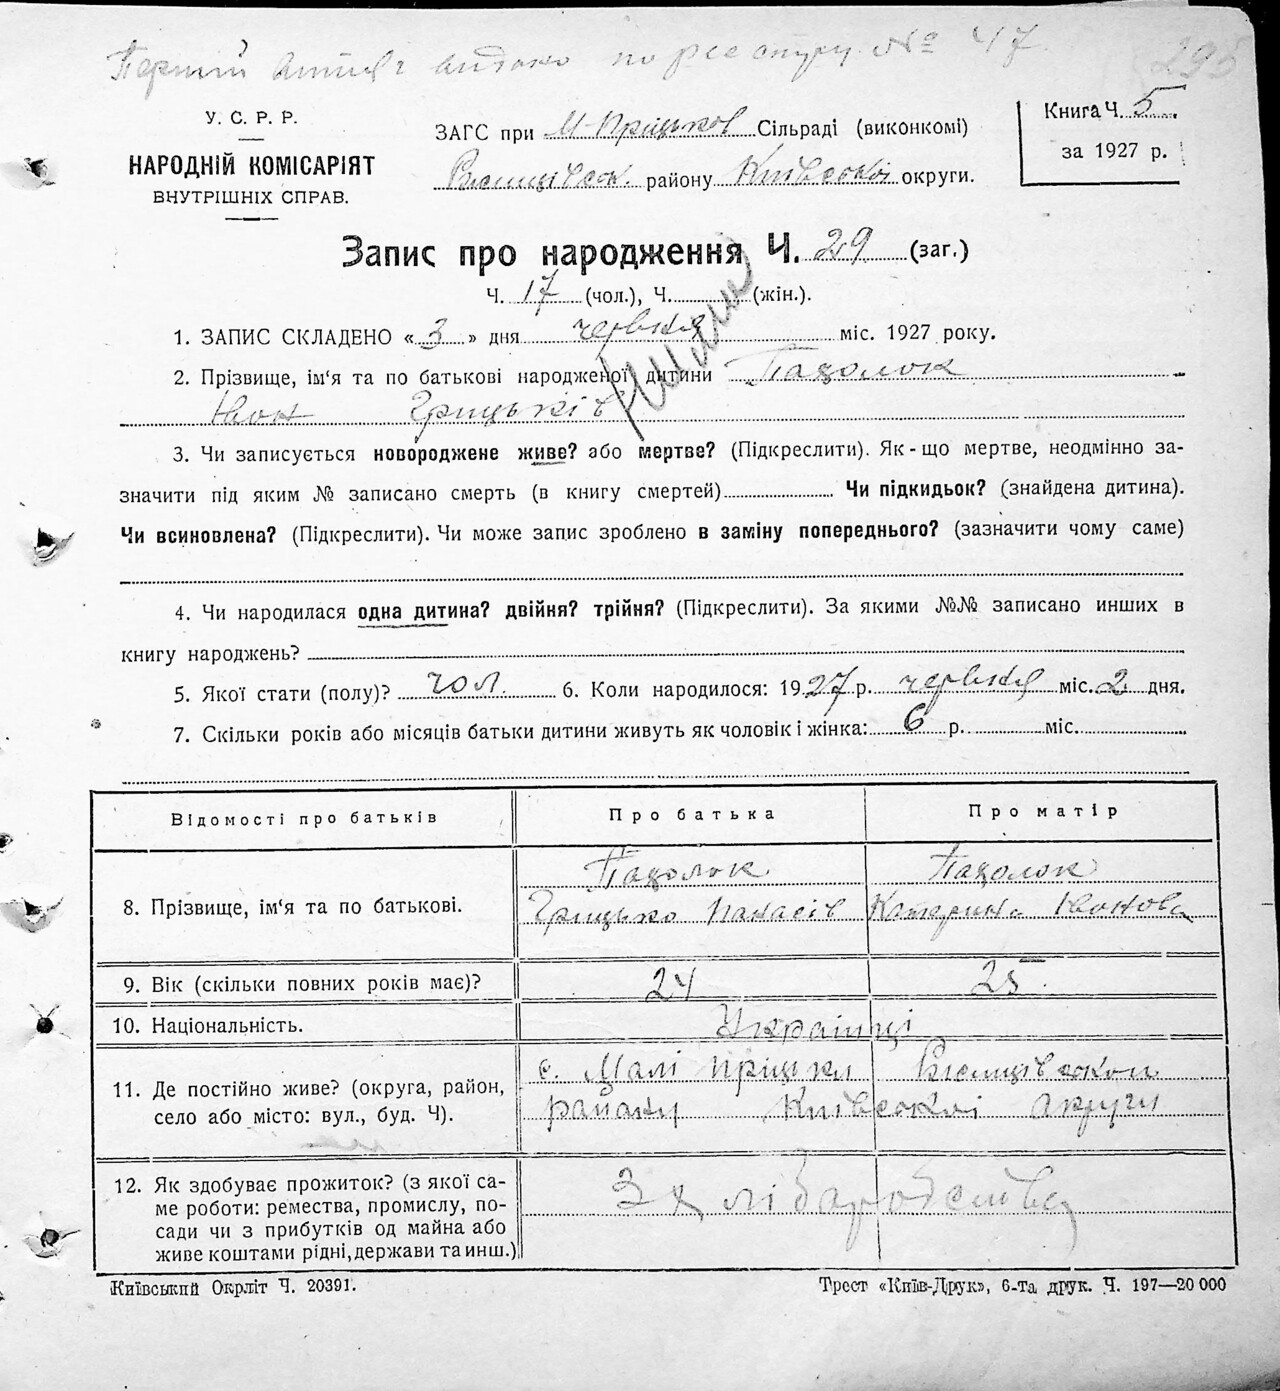 Первий витяг видано по реєстру № 47.
295
У. С. Р. Р.
НАРОДНІЙ КОМІСАРІЯТ
ВНУТРІШНІХ СПРАВ.
ЗАГС при М-Пріцьков Сільраді (виконкомі)
району Київської округи.
Книга Ч. 5
за 1927 р.
Запис про народження Ч. 29 (заг.)
Ч. 17 (чол.), Ч. (жін.).
1. ЗАПИС СКЛАДЕНО « 3 » дня червня міс. 1927 року.
2. Прізвище, ім‘я та по батькові народженої дитини Пацолок
Іван Грицьків
3. Чи записується новороджене живе? або мертве? (Підкреслити). Як-що мертве, неодмінно за-
значити під яким № записано смерть (в книгу смертей) Чи підкидьок? (знайдена дитина).
Чи всиновлена? (Підкреслити). Чи може запис зроблено в заміну попереднього? (зазначити чому саме)
4. Чи народилася одна дитина? двійня? трійня? (Підкреслити). За якими №№ записано инших в
книгу народжень?
5. Якої стати (полу)? чол. 6. Коли народилося: 1927 р. червня міс. 2 дня.
7. Скільки років або місяців батьки дитини живуть як чоловік і жінка: 6 р. міс.
Відомості про батьків Про батька Про матір
8. Прізвище, ім‘я та по батькові. Пацолок Грицько Панасів Пацолок Катерина Іванова
9. Вік (скільки повних років має)? 24 25
10. Національність. Українці
11. Де постійно живе? (округа, район, с. Малі Пріцьки
село або місто: вул., буд. Ч). району Київської округи
12. Як здобуває прожиток? (з якої са-
ме роботи: ремества, промислу, по-
сади чи з прибутків од майна або
живе коштами рідні, держави та инш.) З хліборобства
Київський Окрліт Ч. 20391.
Трест «Київ-Друк», 6-та друк. Ч. 197—20 000